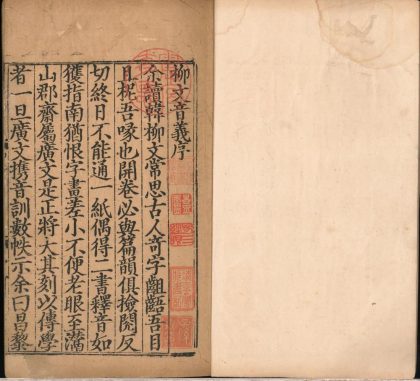 柳文音義序
余讀韓柳文常思古人奇字齟齬吾目
且梔吾喙也開卷必與篇韻俱撿閱反
切終日不能通一紙偶得二書釋音如
獲指南猶恨字畫差小不便老眼至滿
山郡齋屬廣文是正將大其刻以傳學
者一日廣文携音訓數帙示余曰昌黎